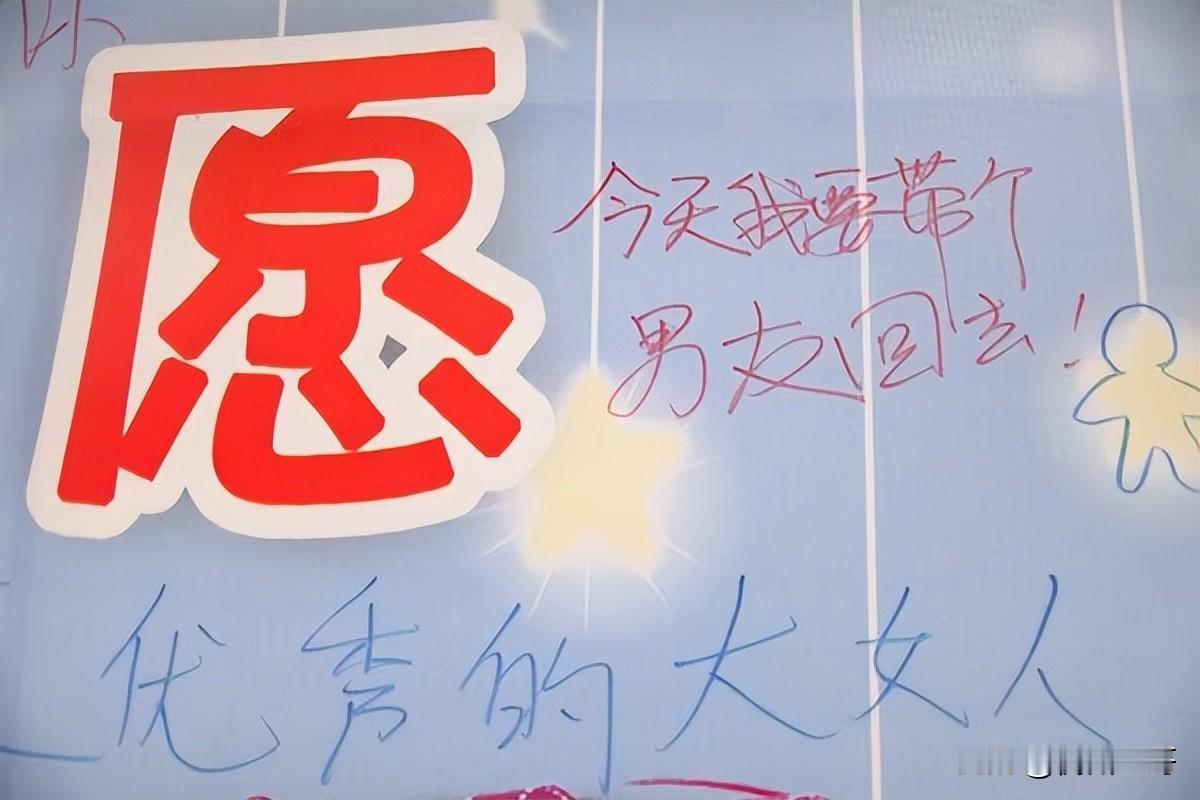 愿
今天我要带个
男友回去!
优秀的大女人